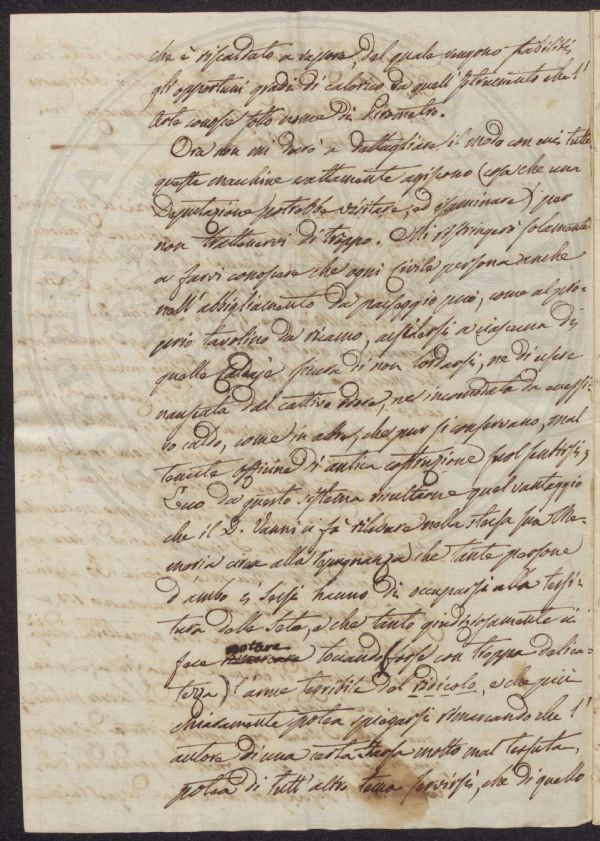 che è riscaldato a vapore, del quale vengono stabiliti
gli opportuni gradi di calorico da quell'Istrumento che l'
Arte conosce sotto nome di Pirometro.
Ora non mi darò a dattagliare il modo con cui tutte
queste macchine esattamente agiscono (cosa che una
Deputazione potrebbe visitare, ed esaminare) per
non trattenervi di troppo. Mi ristringerò solamente
a farvi conoscere che ogni civile persona anche
nell'abbigliamento da passeggio può, come al pro-
prio tavolino da ricamo, assidersi a ciascuna di
quelle sicura di non lordarsi, ne di essere
nauseata dal cattivo odore, ne incomodata da eccessi-
vo caldo, come in altre, che pur si conservano, mal
tenute officine di antica costruzione suol sentirsi;
Ecco da questo sistema risultarne quel vantaggio
che il D. Vanni ci fà rilevare nella stessa sua Me-
moria circa alla repugnanza che tante persone
d'ambo i sessi hanno di occuparsi alla tessi-
tura delle Sete, e che tanto giudiziosamente ci
fece notare toccando (forse con troppa delica-
tezza) l'arme terribile del ridicolo, e che più
chiaramente potea spiegarsi rimarcando che l'
autore di una certa farsa molto mal tessuta,
potea di tutt'altro tema servirsi, che di quello